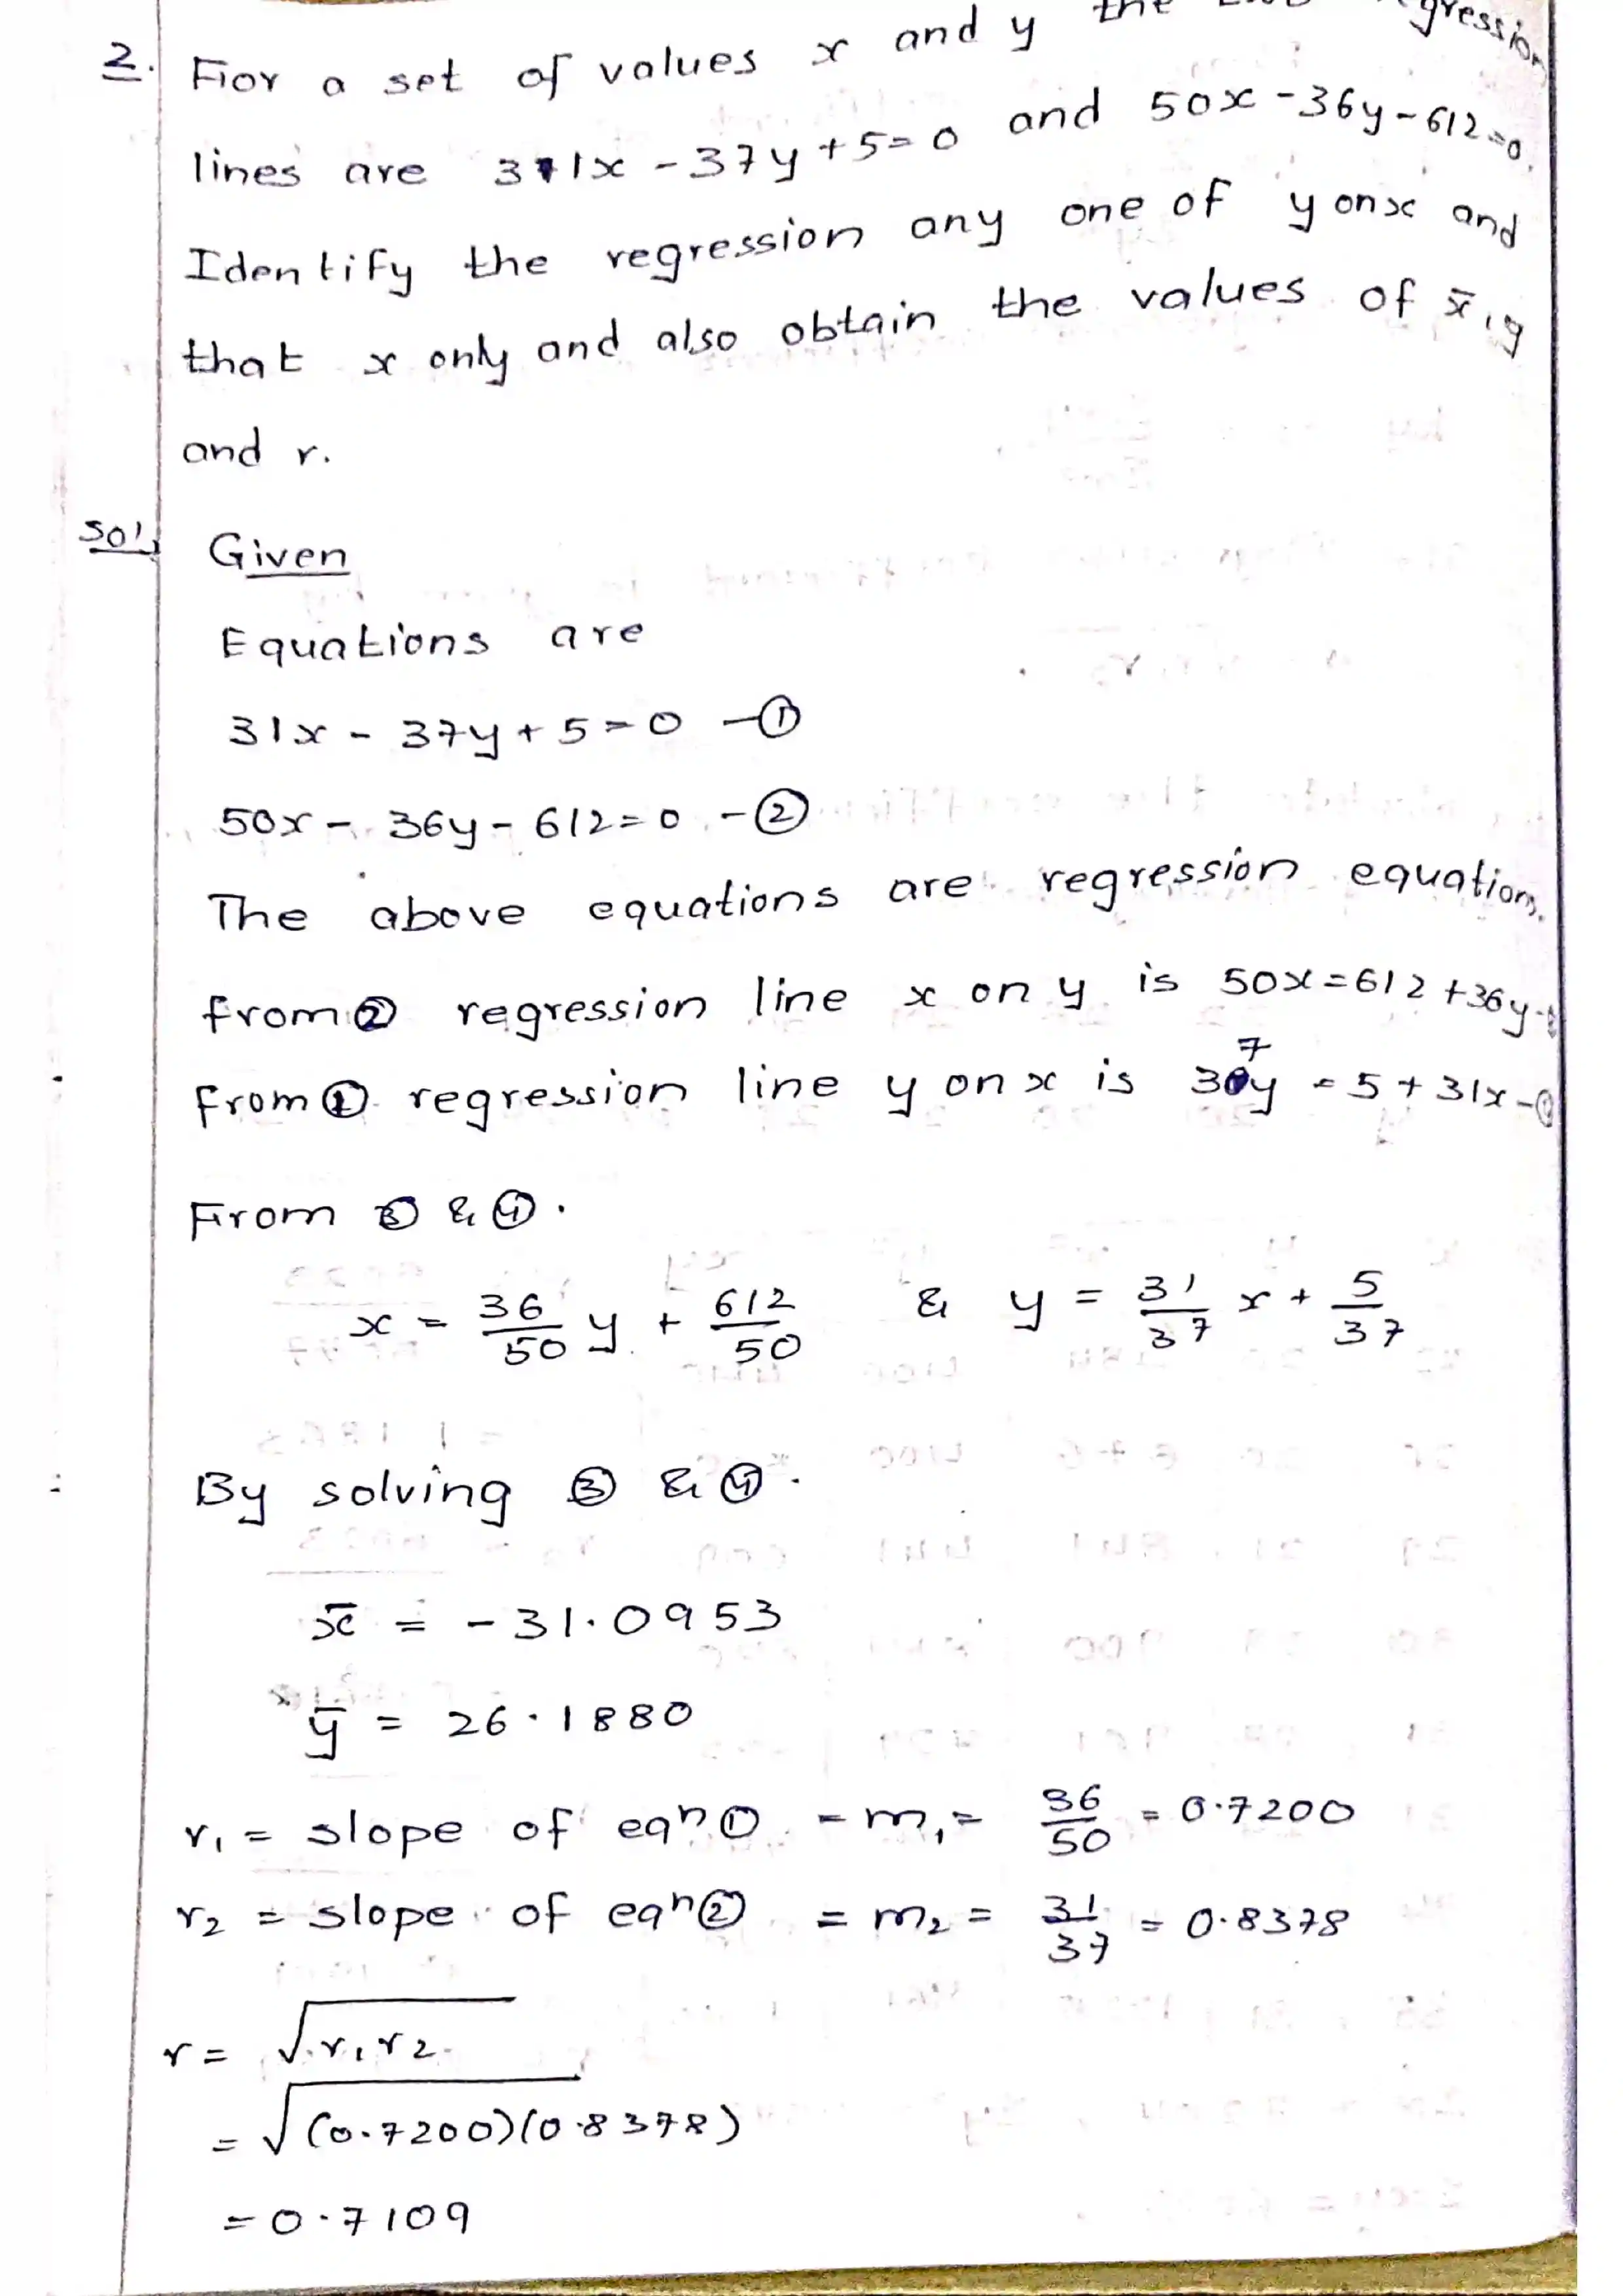 2. For a set of values x and y the
lines are 31x - 37y + 5 = 0 and 50x - 36y - 612 = 0.
Identify the regression any one of y on x and
that x only and also obtain the values of x̄, y
and r.
Sol
Given
Equations are
31x - 37y + 5 = 0 - ①
50x - 36y - 612 = 0 - ②
The above equations are regression equations.
from ② regression line x on y is 50x = 612 + 36y -
from ① regression line y on x is 37y = 5 + 31x -
From ③ & ④.
x = 36/50 y + 612/50 & y = 31/37 x + 5/37
By solving ③ & ④.
x̄ = - 31.0953
ȳ = 26.1880
r₁ = slope of eqn ① = m₁ = 36/50 = 0.7200
r₂ = slope of eqn ② = m₂ = 31/37 = 0.8378
r = √r₁ r₂
= √(0.7200)(0.8378)
= 0.7109